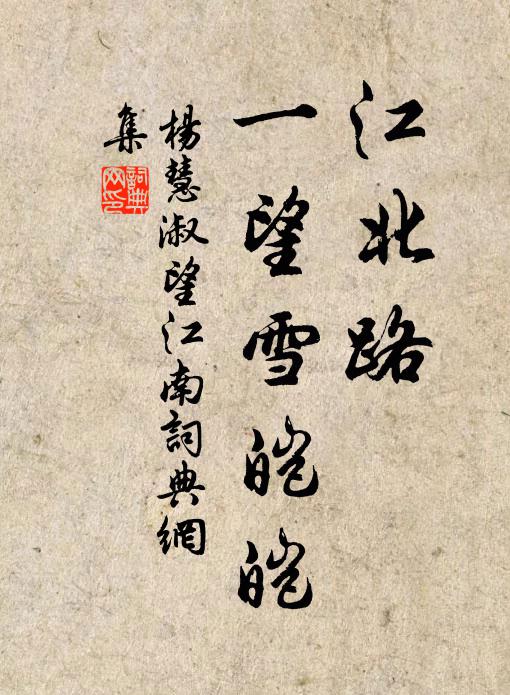 江北路
一望雪皑皑
楊慧淑望江南詞典網
集
詞典
网印